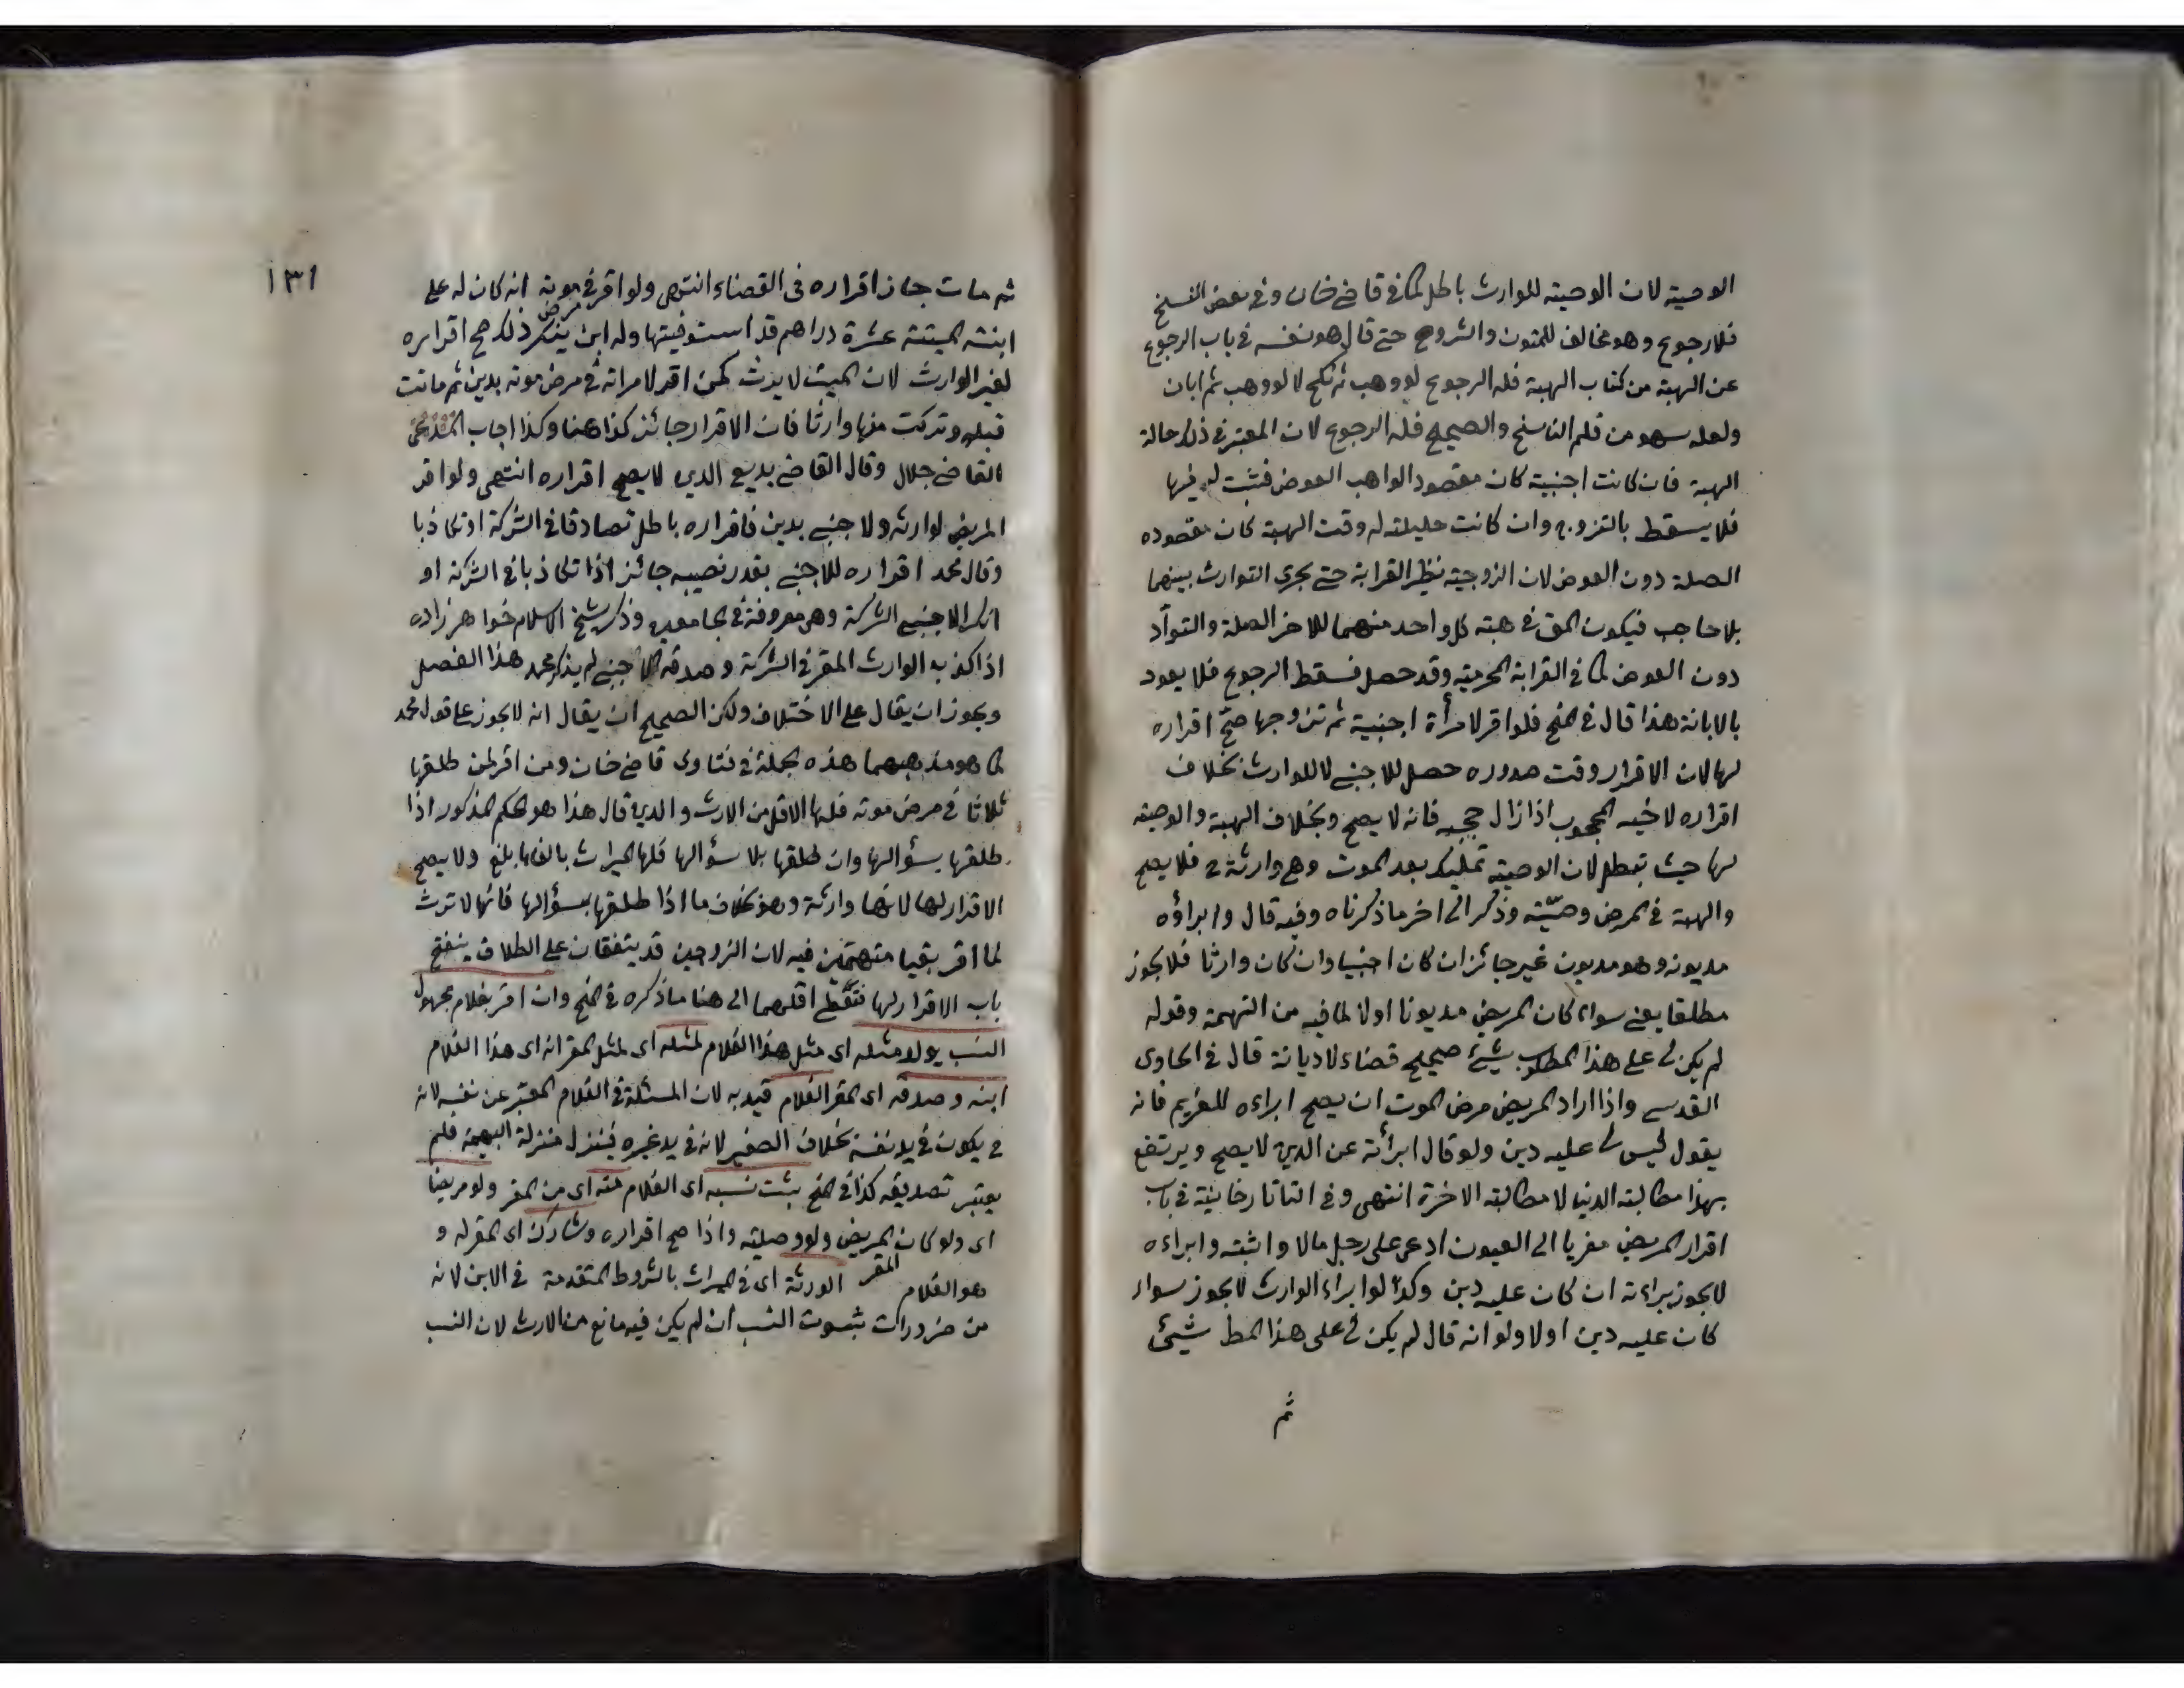 الوصية لان الوصية للوارث باطل كما في قاضي خان وفي بعض النسخ
فلا رجوع وهو مخالف للمتون والشروح حتى قال هو نفسه في باب الرجوع
عن الهبة من كتاب الهبة فله الرجوع لو وهب ثم نكح لا لو وهب ثم ابان
ولعله سهو من قلم الناسخ والصحيح فله الرجوع لان المعتبر في ذلك حالة
الهبة فان كانت اجنبية كان مقصود الواهب العوض فثبت له فيها
فلا يسقط بالتزوج وان كانت حليلته له وقت الهبة كان مقصوده
الصلة دون العوض لان الزوجية نظير القرابة حتى يجرى التوارث بينهما
بلا حاجب فيكون الحق في هبة كل واحد منهما للاخر الصلة والتوآد
دون العوض كما في القرابة المحرمية وقد حصل فسقط الرجوع فلا يعود
بالابانة هذا قال في المنح فلو اقر لامرأة اجنبية ثم تزوجها صحّ اقراره
لها لان الاقرار وقت صدوره حصل للاجنبي لا للوارث بخلاف
اقراره لاخيه المحجوب اذا زال حجبه فانه لا يصح وبخلاف الهبة والوصية
لها حيث تبطل لان الوصية تمليك بعد الموت وهي وارثة ح فلا يصح
والهبة في المرض وصيّته وذكر الى اخر ما ذكرناه وفيه قال وابراؤه
مديونه وهو مديون غير جائز ان كان اجنبيا وان كان وارثا فلا يجوز
مطلقا يعني سواء كان المريض مديونا اولا لما فيه من التهمة وقوله
لم يكن لى على هذا المطلوب شيئ صحيح قضاء لا ديانة قال في الحاوى
القدسى واذا اراد المريض مرض الموت ان يصح ابراءه للغريم فانه
يقول ليس لى عليه دين ولو قال ابرأته عن الدين لا يصح ويرتفع
بهذا مطالبة الدنيا لا مطالبة الاخرة انتهى وفى التاتارخانية في باب
اقرار المريض معزيا الى العيون ادعى على رجل مالا واثبته وابراءه
لا يجوز براءته ان كان عليه دين وكذا لو ابراء الوارث لا يجوز سواء
كان عليه دين اولا ولو انه قال لم يكن لى على هذا المط شيئ
ثم
١٣١
ثم مات جاز اقراره فى القضاء انتهى ولو اقر في مرض موته انه كان له على
ابنته الميتة عشرة دراهم قد استوفيتها وله ابن ينكر ذلك صح اقراره
لغير الوارث لان الميت لا يرث كمن اقر لامراته في مرض موته بدين ثم ماتت
قبله وتركت منها وارثا فان الاقرار جائز كذا هنا وكذا اجاب
القاضي جلال وقال القاضي بديع الدين لا يصح اقراره انتهى ولو اقر
المريض لوارثه ولاجنبي بدين فاقراره باطل تصادقا في الشركة او تكاذبا
وقال محمد اقراره للاجنبي بقدر نصيبه جائز اذا تكاذبا في الشركة او
انكر الاجنبي الشركة وهي معروفة في وذكر شيخ الاسلام خواهر زاده
اذا كذبه الوارث المقر في الشركة وصدقه الاجنبي لم يذكر محمد هذا الفصل
ويجوز ان يقال على الاختلاف ولكن الصحيح ان يقال انه لا يجوز على قول محمد
كما هو مذهبهما هذه جملة في فتاوى قاضي خان ومن اقر لمن طلقها
ثلاثا في مرض موته فلها الاقل من الارث والدين قال هذا هو الحكم المذكور اذا
طلقها بسؤالها وان طلقها بلا سؤالها فلها الميراث بالغا ما بلغ ولا يصح
الاقرار لها لانها وارثة وهو بخلاف ما اذا طلقها بسؤالها فانها لا ترث
لما اقر بقيا متهمَين فيه لان الزوجين قد يتفقان على الطلاق ينفتح
باب الاقرار لها فتعطى اقلهما الى هنا ما ذكره في المنح وان اقر بغلام مجهول
النسب يولد مثله اى مثل هذا الغلام لمثله اى لمثل المقر انه اى هذا الغلام
ابنه وصدقه اى المقر الغلام قيد به لان المسئلة في الغلام المعتبر عن نفسه لانه
ح يكون في يد نفسه بخلاف الصغير لانه في يد غيره فينزل منزلة البهيمة فلم
يعتبر تصديقه كذا في المنح يثبت نسبه اى الغلام منه اى من المقر ولو مريضا
اى ولو كان المريض ولو وصلية واذا صح اقراره وشارك اى المقر له و
هو الغلام المقر الورثة اى في الميراث بالشروط المتقدمة في الابن لانه
من ضرورات ثبوت النسب ان لم يكن فيه مانع من الارث لان النسب